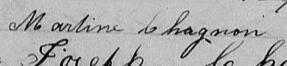 Martine Chagnon
Joseph